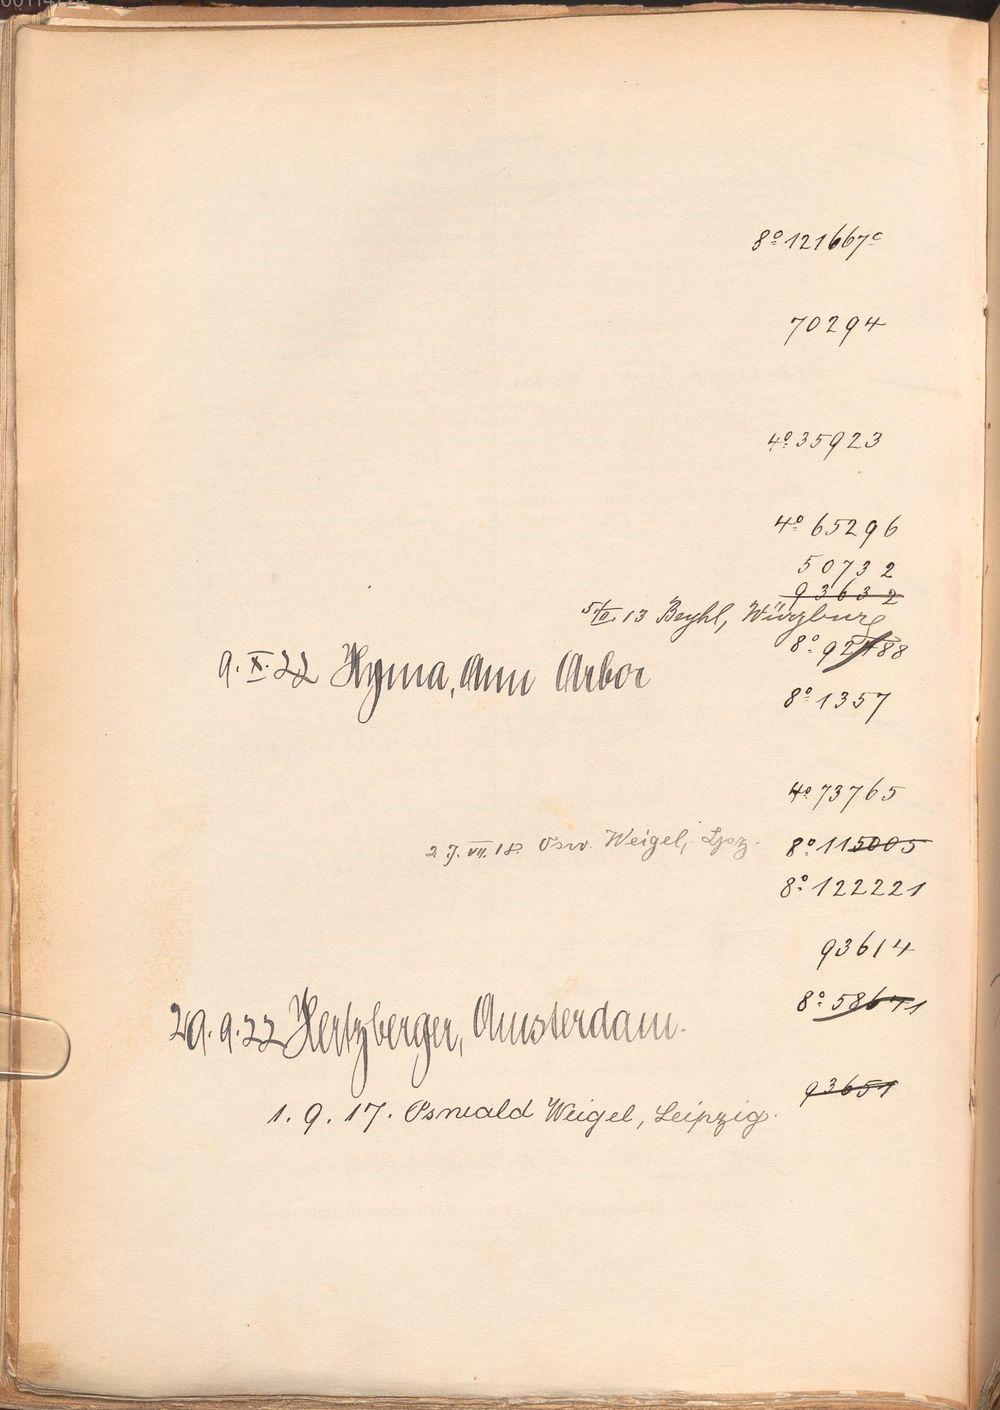 8º 121667c
70294
4º 35923
4º 65296
50732
93632
5/II. 13 Beyhl, Würzburg
8º 92788
9. X. 22 Hyma, Ann Arbor
8º 1357
4º 73765
27. VII. 18. Osw. Weigel, Lpzg. 8º 115005
8º 122221
93614
8º 58671
29. 9. 22 Hertzberger, Amsterdam.
93651
1. 9. 17. Oswald Weigel, Leipzig.